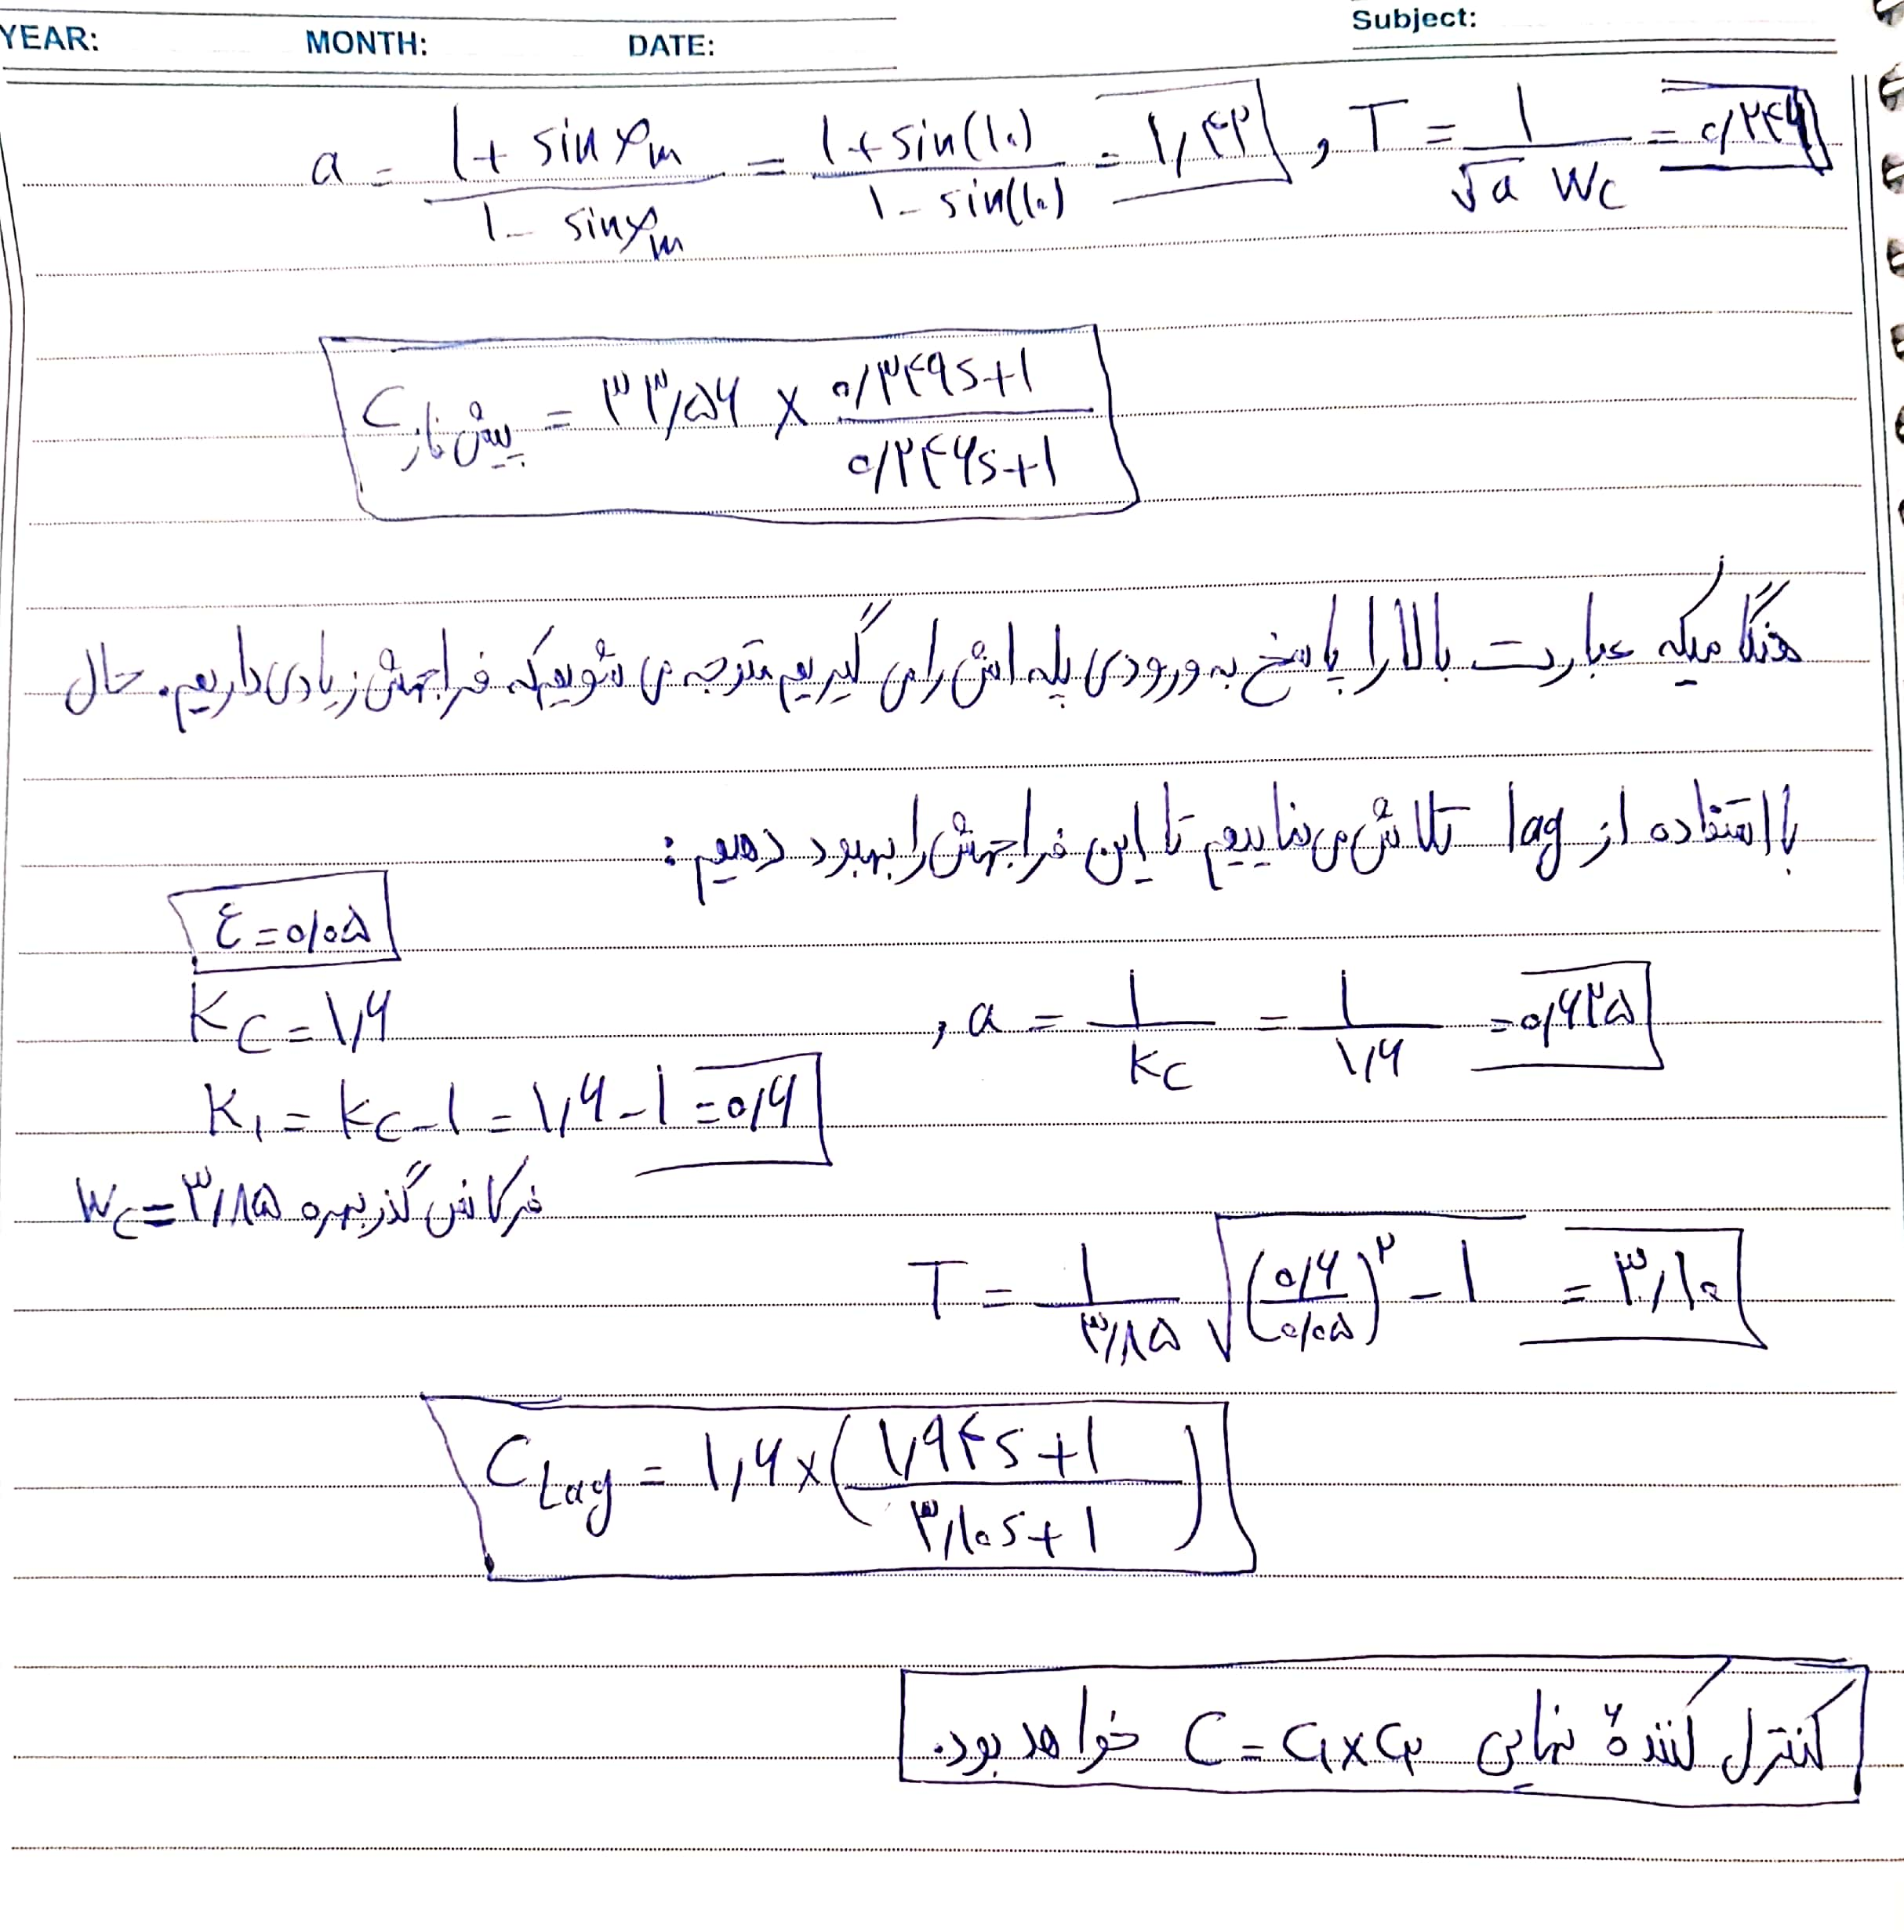 YEAR: MONTH: DATE: Subject:
a = (1 + sin φm) / (1 - sin φm) = (1 + sin(۱۰)) / (1 - sin(۱۰)) = ۱٫۴۲ , T = 1 / (√a Wc) = ۰٫۲۴۶
C پیش فاز = ۳۳٫۵۶ × (۰٫۳۴۹s+1) / (۰٫۲۴۶s+1)
هنگامیکه عبارت بالا را پاسخ به ورودی پله اش را می گیریم متوجه می شویم که فراجهش زیادی داریم. حال
با استفاده از lag تلاش می نماییم تا این فراجهش را بهبود دهیم:
ε = ۰٫۰۵
Kc = ۱٫۶ , a = 1 / Kc = 1 / ۱٫۶ = ۰٫۶۲۵
K۱ = Kc - 1 = ۱٫۶ - 1 = ۰٫۶
Wc = ۳٫۸۵ فرکانس گذر بهره
T = 1 / ۳٫۸۵ √((۰٫۶ / ۰٫۰۵)^۲ - 1) = ۳٫۱۰
C Lag = ۱٫۶ × ((۱٫۹۴s+1) / (۳٫۱۰s+1))
کنترل کنندهٔ نهایی C = C۱ × C۲ خواهد بود.